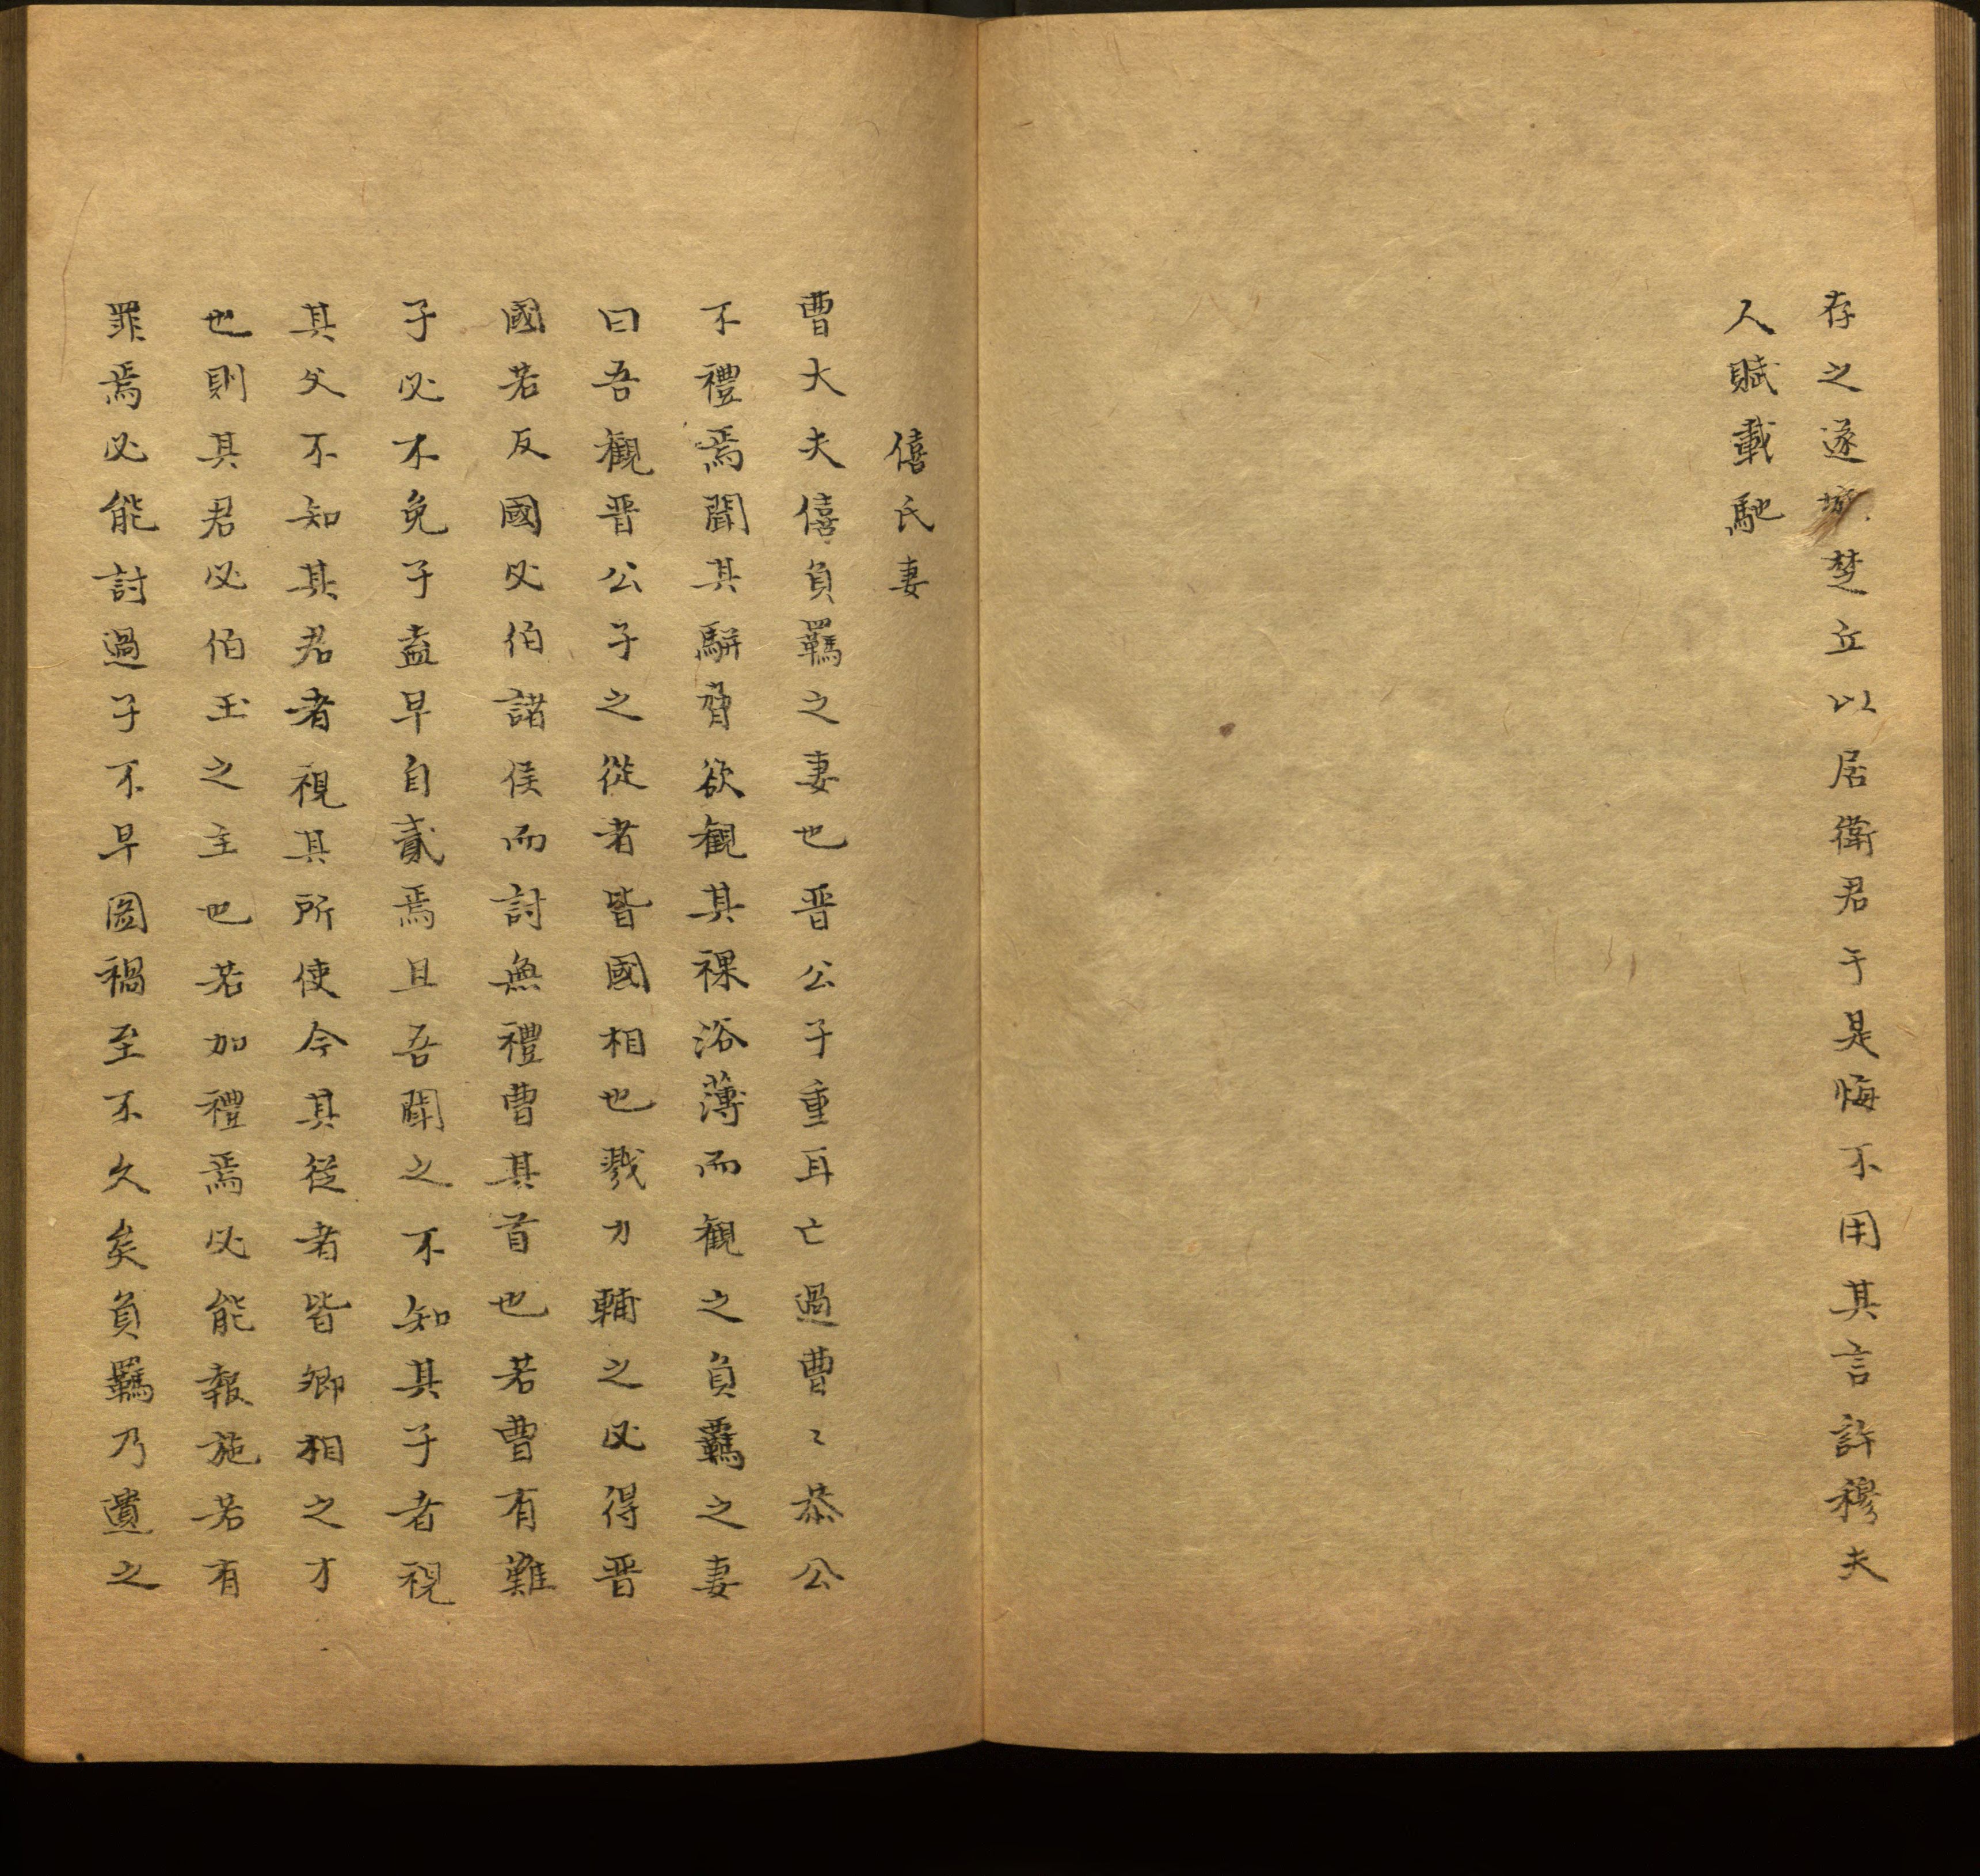 存之遂城楚丘以居衛君于是悔不用其言許穆夫
人賦載馳
僖氏妻
曹大夫僖負羈之妻也晋公子重耳亡過曹〻恭公
不禮焉聞其駢脅欲觀其裸浴薄而觀之負羈之妻
曰吾觀晋公子之從者皆國相也戮力輔之必得晋
國若反國必伯諸侯而討無禮曹其首也若曹有難
子必不免子盍早自貳焉且吾聞之不知其子者視
其父不知其君者視其所使今其從者皆卿相之才
也則其君必伯王之主也若加禮焉必能報施若有
罪焉必能討過子不早圖禍至不久矣負羈乃遺之